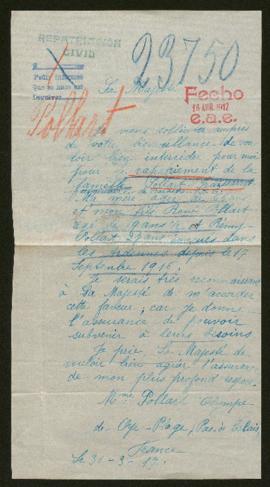 REPATRIACION
CIVIL
23750
Sa Majesté
Fecho
15 AVR. 1917
e.a.e.
Pollart
Je vous sollicite auprès
de votre bienveillance de vou
voir bien intercéder pour moi
pour le rapatriement de la
famille Pollart
Ma mère âgée de ans
et mon frère René Pollart
âgé de 19 ans et
Pollart 39 ans dans
les Ardennes depuis le 17
Septembre 1916.
Je serais très reconnaissante
à Sa Majesté de m'accorder
cette faveur, car je donne
l'assurance de pouvoir
subvenir à leurs besoins
Je prie Sa Majesté de
vouloir bien agréer l'assurance
de mon plus profond respect.
Mme Pollart Olympe
Pas de Calais
France
le 31-3-17.